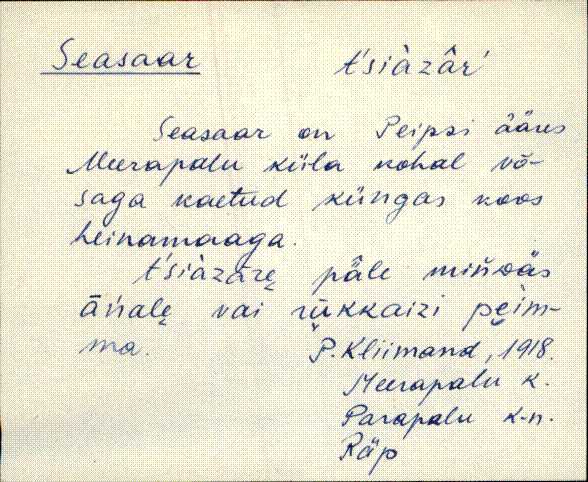 Seasaar t'siàzâŕ
Seasaar on Peipsi ääres
Meerapalu küla kohal võ-
saga kaetud küngas koos
heinamaaga.
t'siàzārę pǟle miňnäs
āinalę vai rükkaizi pęim-
ma. P. Kliimand, 1918.
Meerapalu k.
Parapalu k-n.
Räp